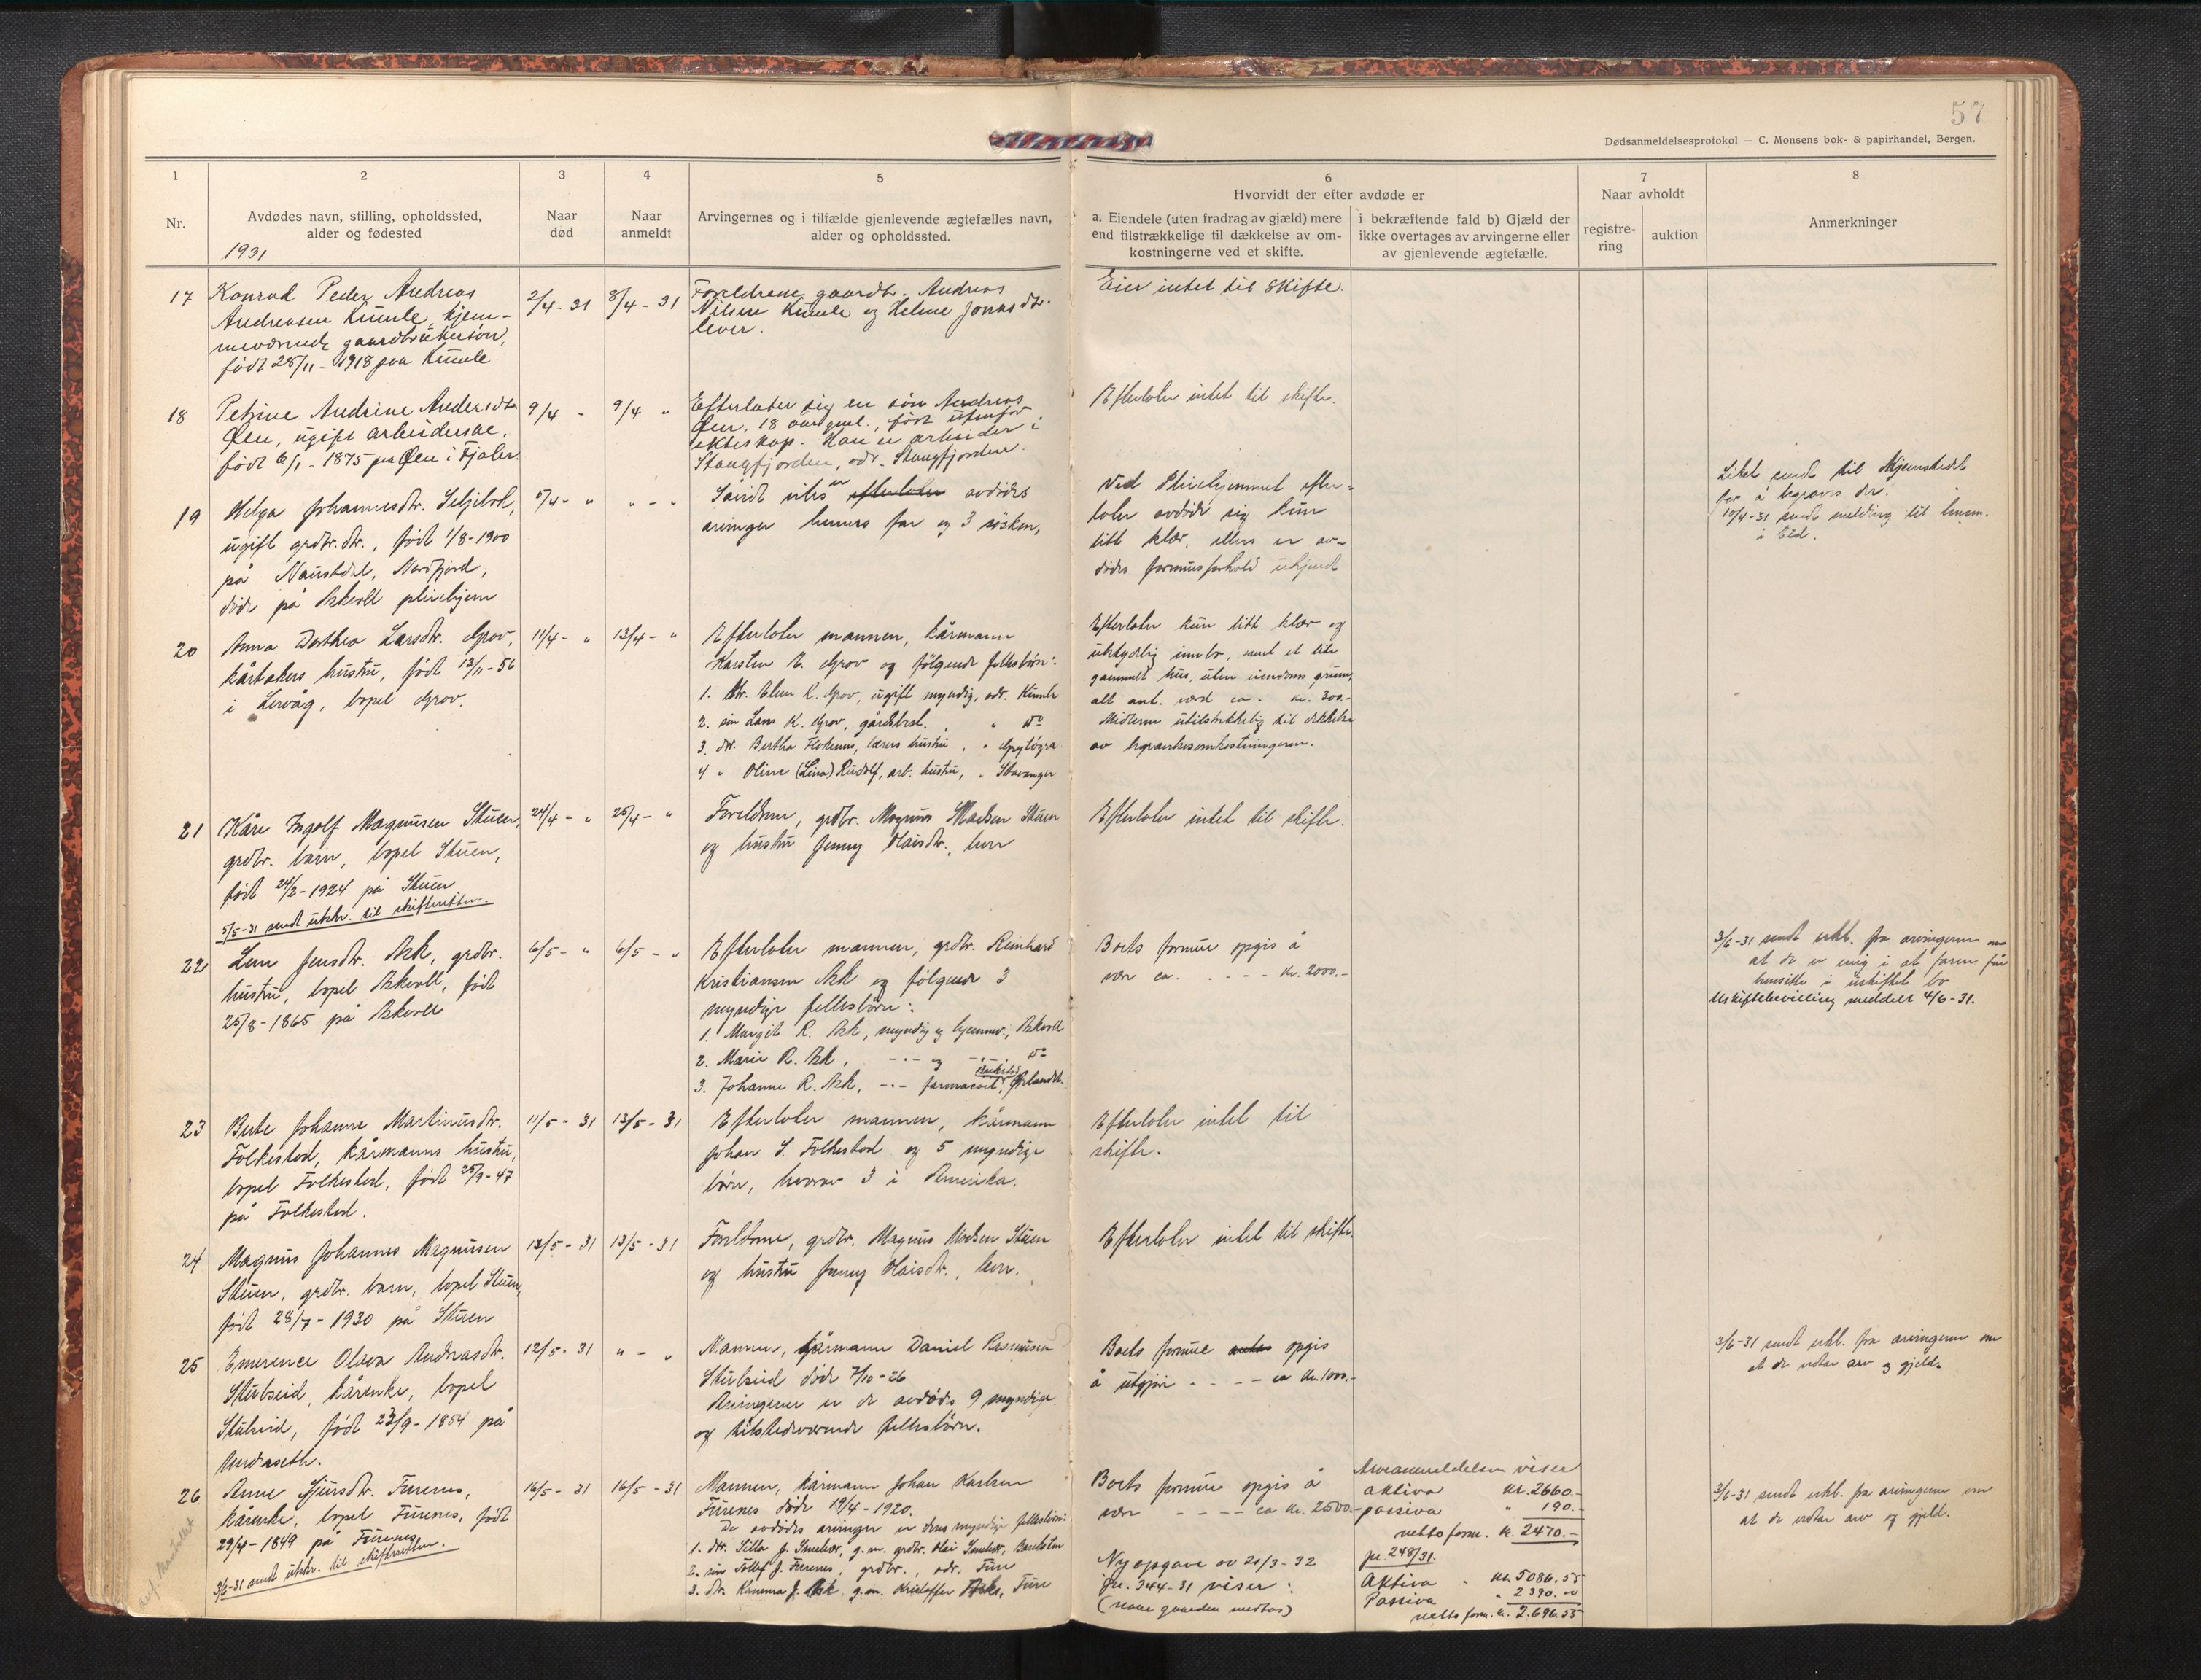 57
Dødsanmeldelsesprotokol — C. Monsens bok- & papirhandel, Bergen.
1
2
3
4
5
6
7
8
Nr.
Avdødes navn, stilling, opholdssted,
alder og fødested
Naar
død
Naar
anmeldt
Arvingernes og i tilfælde gjenlevende ægtefælles navn,
alder og opholdssted.
Hvorvidt der efter avdøde er
a. Eiendele (uten fradrag av gjæld) mere
end tilstrækkelige til dækkelse av om-
kostningerne ved et skifte.
i bekræftende fald b) Gjæld der
ikke overtages av arvingerne eller
av gjenlevende ægtefælle.
Naar avholdt
registre-
ring
auktion
Anmerkninger
1931
17
Konrad Peder Andreas
Andreassen Kumle, hjem-
meværende gaardbrukersøn,
født 28/11 - 1918 paa Kumle
2/4 - 31
8/4 - 31
Foreldrene gaardbr. Andreas
Nilsen Kumle og Heline Jonasdtr.
lever.
Eier intet til skifte.
18
Petrine Andrine Andersdtr.
Øen, ugift arbeiderske,
født 6/1 - 1875 paa Øen i Fjaler.
9/4 -
9/4 "
Efterlater sig en søn Andreas
Øen, 18 aar gml., født utenfor
ekteskap. Han er arbeider i
Stangfjorden, adr. Stangfjorden.
Efterlater intet til skifte.
19
Helga Johannesdtr.
ugift grdbr. dtr., født 1/8 - 1900
på Naustdal, Nordfjord,
døde på Askvoll pleiehjem
5/4 - "
" - "
Såvidt vites er efterlater avdødes
arvinger hennes far og 3 søsken,
Ved Pleiehjemmet efter-
later avdøde sig kun
litt klær, ellers er av-
dødes formuesforhold ukjendt
Liket sendt til Hjemstedet
for å begraves der.
10/4 - 31 sendt melding til lensm.
i Eid.
20
Anna Dorthea Larsdtr. Grov,
kårtakers hustru, født 13/11 - 56
i Lervåg, bopel Grov.
11/4 - "
13/4 - "
Efterlater mannen, kårmann
Karsten E. Grov og følgende fellesbørn:
1. dtr. Elen K. Grov, ugift myndig, adr. Kumle
2. søn Lars K. Grov, gårdsbest., " do
3. dtr. Bertha Flokenes, lærers hustru, "
4 " Oline (Lina) Rudolf, arb. hustru, " Stavanger
Efterlater kun litt klær og
ubetydelig innbo, samt et lite
gammelt hus, uten eiendoms grunn,
alt ant. verd ca. kr. 300.-
Midlerne utilstrekkelig til dekkelse
av begravelsesomkostningene.
21
Kåre Ingolf Magnusen Stuen,
grdbr. barn, bopel Stuen,
født 24/2 - 1924 på Stuen
24/4 - "
25/4 - "
Foreldrene, grdbr. Magnus Madsen Stuen
og hustru Jenny Olaisdtr., lever
Efterlater intet til skifte.
5/5 - 31 sendt utskr. til skifteretten.
22
Lene Jensdtr. Ask, grdbr.
hustru, bopel Askvoll, født
25/8 - 1865 på Askvoll
6/5 - "
6/5 - "
Efterlater mannen, grdbr. Reinhard
Kristiansen Ask og følgende 3
myndige fellesbørn:
1. Margit R. Ask, myndig og hjemmev., Askvoll
2. Marie R. Ask, -"- og -"- do
3. Johanne R. Ask, -"- farmaceut,
Boets formue opgis å
være ca. - - - kr. 2000.-
3/6 - 31 sendt erkl. fra arvingerne om
at de er enig i at faren får
hensitte i uskiftet bo
Uskiftebevilling meddelt 4/6 - 31.
23
Berte Johanne Martinusdtr.
Folkestad, kårmanns hustru,
bopel Folkestad, født 25/9 - 47
på Folkestad.
11/5 - 31
13/5 - 31
Efterlater mannen, kårmann
Johan S. Folkestad og 5 myndige
børn, hvorav 3 i Amerika.
Efterlater intet til
skifte.
24
Magnus Johannes Magnusen
Stuen, grdbr. barn, bopel Stuen,
født 28/7 - 1930 på Stuen
13/5 - 31
13/5 - 31
Foreldrene, grdbr. Magnus Madsen Stuen
og hustru Jenny Olaisdtr., lever.
Efterlater intet til skifte.
25
Emerence Olava Andreasdtr.
Stubseid, kårenke, bopel
Stubseid, født 23/9 - 1854 på
12/5 - 31
" - "
Mannen, kårmann Daniel Rasmussen
Stubseid døde 7/10 - 26
Arvingerne er de avdødes 9 myndige
og tilstedeværende fellesbørn.
Boets formue antas opgis
å utgjøre - - - - ca kr. 1000.-
3/6 - 31 sendt erkl. fra arvingerne om
at de vedtar arv og gjeld.
26
Anne Sjursdtr. Furenes,
kårenke, bopel Furenes, født
29/4 - 1849 på Furenes
3/6 - 31 sendt utskr. til skifteretten.
16/5 - 31
16/5 - 31
Mannen, kårmann Johan Karlsen
Furenes døde 19/4 - 1920.
De avdødes arvinger er deres myndige fellesbørn:
1. dtr. Silla J. g.m. grdbr. Olai
2. søn Tollef J. Furenes, grdbr., adr. Fure
3. dtr. Kamma J. Ask g.m. Kristoffer Ask, Fure
Boets formue opgis å
være - - - - ca kr. 2500.-
Ny opgave av 21/3 - 32
jr. 344 - 31 viser:
(naar gaarden medtas)
Arveanmeldelsen viser
aktiva kr. 2660.-
passiva " 190.-
netto form. kr. 2470.-
jr. 248/31.
Aktiva - kr. 5086.55
Passiva " 2390.00
netto form. kr. 2.696.55
3/6 - 31 sendt erkl. fra arvingerne om
at de vedtar arv og gjeld.